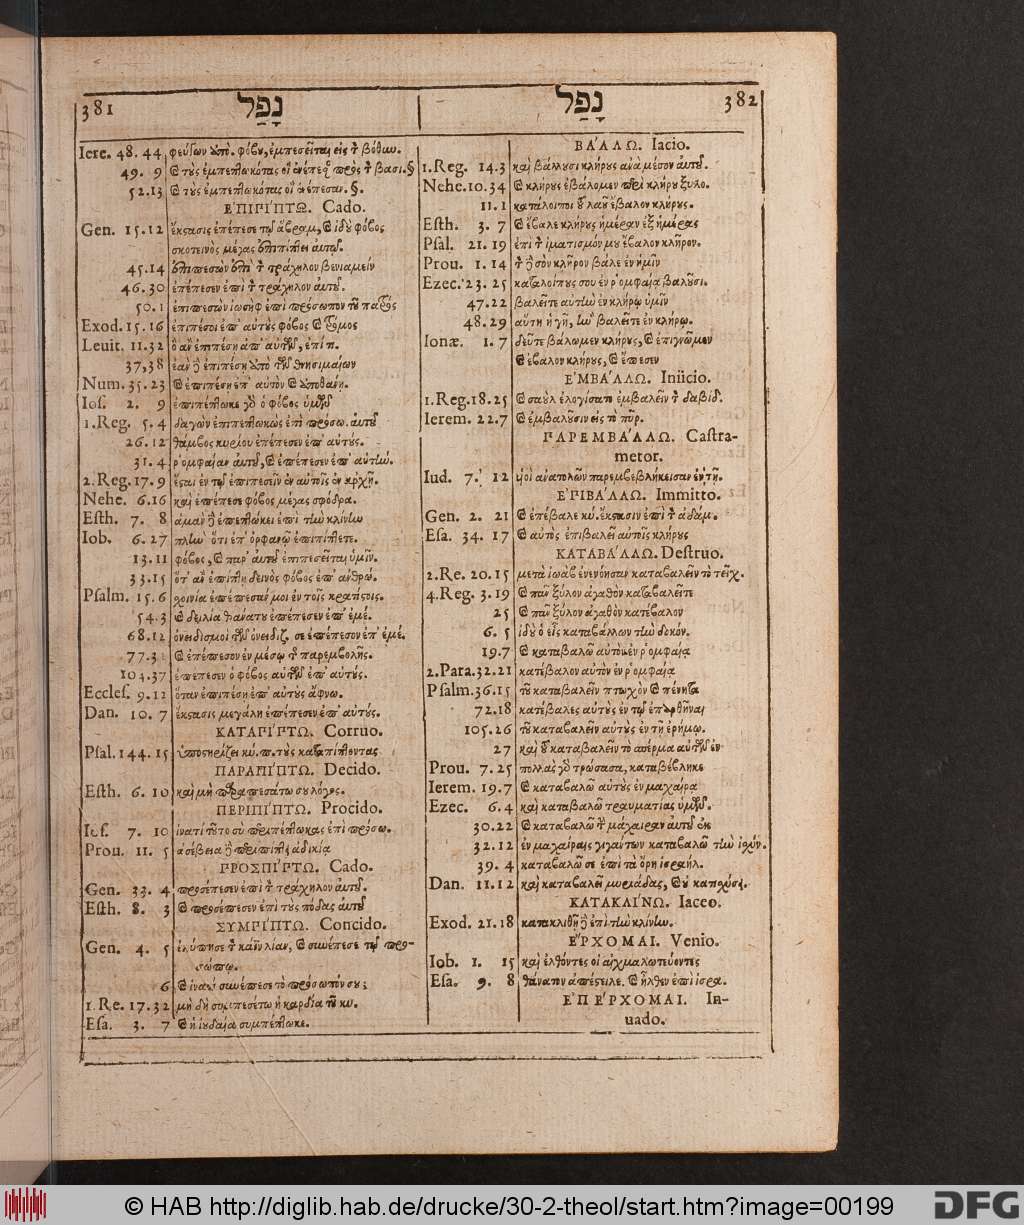 381 נָפַל
Iere. 48. 44 φεύγων ὑπὸ. φόβου, ἐμπεσεῖται εἰς τ βόθυν.
49. 9 καὶ τὺς ἐμπεπλωκότας οἳ
52.13 καὶ τὺς ἐμπεπλωκότας οἳ ἀνέπεσαν. §.
ΕΠΙΠΙΠΤΩ. Cado.
Gen. 15.12 ἔκστασις ἐπέπεσε τῷ ἅβραμ, καὶ ἰδοὺ φόβος
σκοτεινὸς μέγας ἐπιπίπτει αὐτῷ.
45.14 ἐπιπεσὼν ἐπὶ τ τράχηλον βενιαμείν
46.30 ἐπέπεσεν ἐπὶ τ τράχηλον αὐτῦ.
50.1 ἐπιπεσὼν ἰωσὴφ ἐπὶ πρόσωπον τῦ πατρός
Exod. 15.16 ἐπιπέσοι ἐπ' αὐτὺς φόβος καὶ τρόμος
Leuit. 11.32 ὃ ἂν ἐπιπέσῃ ἀπ' αὐτῶν, ἐπίπ.
37,38 ἐὰν δὲ ἐπιπέσῃ ἀπὸ τῶν θνησιμαίων
Num. 35. 23 καὶ ἐπιπέσῃ ἐπ' αὐτὸν καὶ ἀποθάνῃ.
Ios. 2. 9 ἐπιπέπτωκε γὸ ὁ φόβος ὑμῶν
1.Reg. 5.4 δαγὼν ἐπιπεπτωκὼς ἐπὶ πρόσω. αὐτῦ
26.12 θάμβος κυρίου ἐπέπεσεν ἐπ' αὐτύς.
31.4 ῥομφαίαν αὐτῦ, καὶ ἐπέπεσεν ἐπ' αὐτήν.
2.Reg. 17.9 ἔσται ἐν τῷ ἐπιπεσεῖν ἐν αὐτοῖς ἐν ἀρχῇ.
Nehe. 6.16 καὶ ἐπέπεσε φόβος μέγας σφόδρα.
Esth. 7. 8 ἀμὰν δὲ ἐπεπτώκει ἐπὶ τὴν κλίνην
Iob. 6.27 πλὴν ὅτι ἐπ' ὀρφανῷ ἐπιπίπτετε.
13.11 φόβος, καὶ παρ' αὐτῦ ἐπιπεσεῖται ὑμῖν.
33.15 ὅτ' ἂν ἐπιπίπτῃ δεινὸς φόβος ἐπ' ἀνθρώ.
Psalm. 15.6 χοινία ἐπέπεσάν μοι ἐν τοῖς κρατίστοις.
54.3 καὶ δειλία θανάτυ ἐπέπεσεν ἐπ' ἐμέ.
68.12 ὀνειδισμοὶ τῶν ὀνειδιζ. σε ἐπέπεσον ἐπ' ἐμέ.
77.3 καὶ ἐπέπεσον ἐν μέσῳ τ παρεμβολῆς.
104.37 ἐπέπεσεν ὁ φόβος αὐτῶν ἐπ' αὐτύς.
Eccles. 9.12 ὅταν ἐπιπέσῃ ἐπ' αὐτὺς ἄφνω.
Dan. 10. 7 ἔκστασις μεγάλη ἐπέπεσεν ἐπ' αὐτύς.
ΚΑΤΑΠΙΠΤΩ. Corruo.
Psal. 144. 15 ὑποστηρίζει κύ. π. τὺς καταπίπτοντας
ΠΑΡΑΠΙΠΤΩ. Decido.
Esth. 6. 10 καὶ μὴ παραπεσάτω συ λόγος.
ΠΕΡΙΠΙΠΤΩ. Procido.
Ios. 7. 10 ἱνατί τῦτο σὺ πέπτωκας ἐπὶ πρόσω.
Prou. 11. 5 ἀσέβεια δὲ περιπίπτει ἀδικίᾳ
ΠΡΟΣΠΙΠΤΩ. Cado.
Gen. 33. 4 προσέπεσεν ἐπὶ τ τράχηλον αὐτῦ.
Esth. 8. 3 καὶ προσέπεσεν ἐπὶ τὺς πόδας αὐτῦ
ΣΥΜΠΙΠΤΩ. Concido.
Gen. 4. 5 ἐλύπησε τ κάϊν λίαν, καὶ συνέπεσε τῷ προ-
σώπῳ.
6 καὶ ἱνατί συνέπεσε τὸ πρόσωπόν συ;
1.Re. 17.32 μὴ δὴ συμπεσέτω ἡ καρδία τῦ κυ.
Esa. 3. 7 καὶ ἡ ἰυδαία συμπέπτωκε.
נָפַל 382
ΒΑΛΛΩ. Iacio.
1.Reg. 14.3 καὶ βάλλυσι κλήρυς ἀνὰ μέσον αὐτῦ.
Nehe. 10.34 καὶ κλήρυς ἐβάλομεν περὶ κλήρυ ξυλο.
11.1 κατάλοιποι τῦ λαῦ ἔβαλον κλήρυς.
Esth. 3. 7 καὶ ἔβαλε κλήρυς ἡμέραν ἐξ ἡμέρας
Psal. 21. 19 ἐπὶ τ ἱματισμόν μυ ἔβαλον κλῆρον.
Prou. 1. 14 τ δὲ σὸν κλῆρον βάλε ἐν ἡμῖν
Ezec. 23. 25 καταλοίπυς σου ἐν ῥομφαίᾳ βαλῦσι.
47.22 βαλεῖτε αὐτὴν ἐν κλήρῳ ὑμῖν
48.29 αὕτη ἡ γῆ, ἣν βαλεῖτε ἐν κλήρῳ.
Ionæ. 1. 7 δεῦτε βάλωμεν κλήρυς, καὶ ἐπιγνῶμεν
καὶ ἔβαλον κλήρυς, καὶ ἔπεσεν
ΕΜΒΑΛΛΩ. Iniicio.
1.Reg. 18.25 καὶ σαυλ ἐλογίσατο ἐμβαλεῖν τ δαβίδ.
Ierem. 22.7 καὶ ἐμβαλῦσιν εἰς τὸ πῦρ.
ΠΑΡΕΜΒΑΛΛΩ. Castra-
metor.
Iud. 7. 12 υἱοὶ ἀνατολῶν παρεμβεβλήκεισαν ἐν τῇ.
ΕΠΙΒΑΛΛΩ. Immitto.
Gen. 2. 21 καὶ ἐπέβαλε κύ. ἔκστασιν ἐπὶ τ ἀδάμ.
Esa. 34. 17 καὶ αὐτὸς ἐπιβαλεῖ αὐτοῖς κλήρυς
ΚΑΤΑΒΑΛΛΩ. Destruo.
2. Re. 20.15 μετὰ ἰωὰβ ἐνενόησαν καταβαλεῖν τὸ τεῖχ.
4.Reg. 3.19 καὶ πᾶν ξύλον ἀγαθὸν καταβαλεῖτε
25 καὶ πᾶν ξύλον ἀγαθὸν κατέβαλον
6. 5 ἰδοὺ ὁ εἷς καταβάλλων τὴν δοκόν.
19.7 καὶ καταβαλῶ αὐτὸν ἐν ῥομφαίᾳ
2.Para. 32.21 κατέβαλον αὐτὸν ἐν ῥομφαίᾳ
Psalm. 36.15 τῦ καταβαλεῖν πτωχὸν καὶ πένητα
72.18 κατέβαλες αὐτὺς ἐν τῷ ἐπαρθῆναι
105.26 τῦ καταβαλεῖν αὐτὺς ἐν τῇ ἐρήμῳ.
27 καὶ τῦ καταβαλεῖν τὸ σπέρμα αὐτῶν ἐν
Prou. 7. 25 πολλὺς γὸ τρώσασα, καταβέβληκε
Ierem. 19.7 καὶ καταβαλῶ αὐτὺς ἐν μαχαίρᾳ
Ezec. 6.4 καὶ καταβαλῶ τραυματίας ὑμῶν.
30.22 καὶ καταβαλῶ τ μάχαιραν αὐτῦ ἐκ
32.12 ἐν μαχαίραις γιγάντων καταβαλῶ τὴν ἰσχύν.
39. 4 καταβαλῶ σε ἐπὶ τὰ ὄρη ἰσραήλ.
Dan. 11.12 καὶ καταβαλεῖ μυριάδας, καὶ ὐ κατισχύσει.
ΚΑΤΑΚΛΙΝΩ. Iaceo.
Exod. 21.18 κατακλιθῇ δὲ ἐπὶ τὴν κλίνην.
ΕΡΧΟΜΑΙ. Venio.
Iob. 1. 15 καὶ ἐλθόντες οἱ αἰχμαλωτεύοντες
Esa. 9. 8 θάνατον ἀπέστειλε. καὶ ἦλθεν ἐπὶ ἰσρα.
ΕΠΕΡΧΟΜΑΙ. In-
uado.
© HAB http://diglib.hab.de/drucke/30-2-theol/start.htm?image=00199
DFG